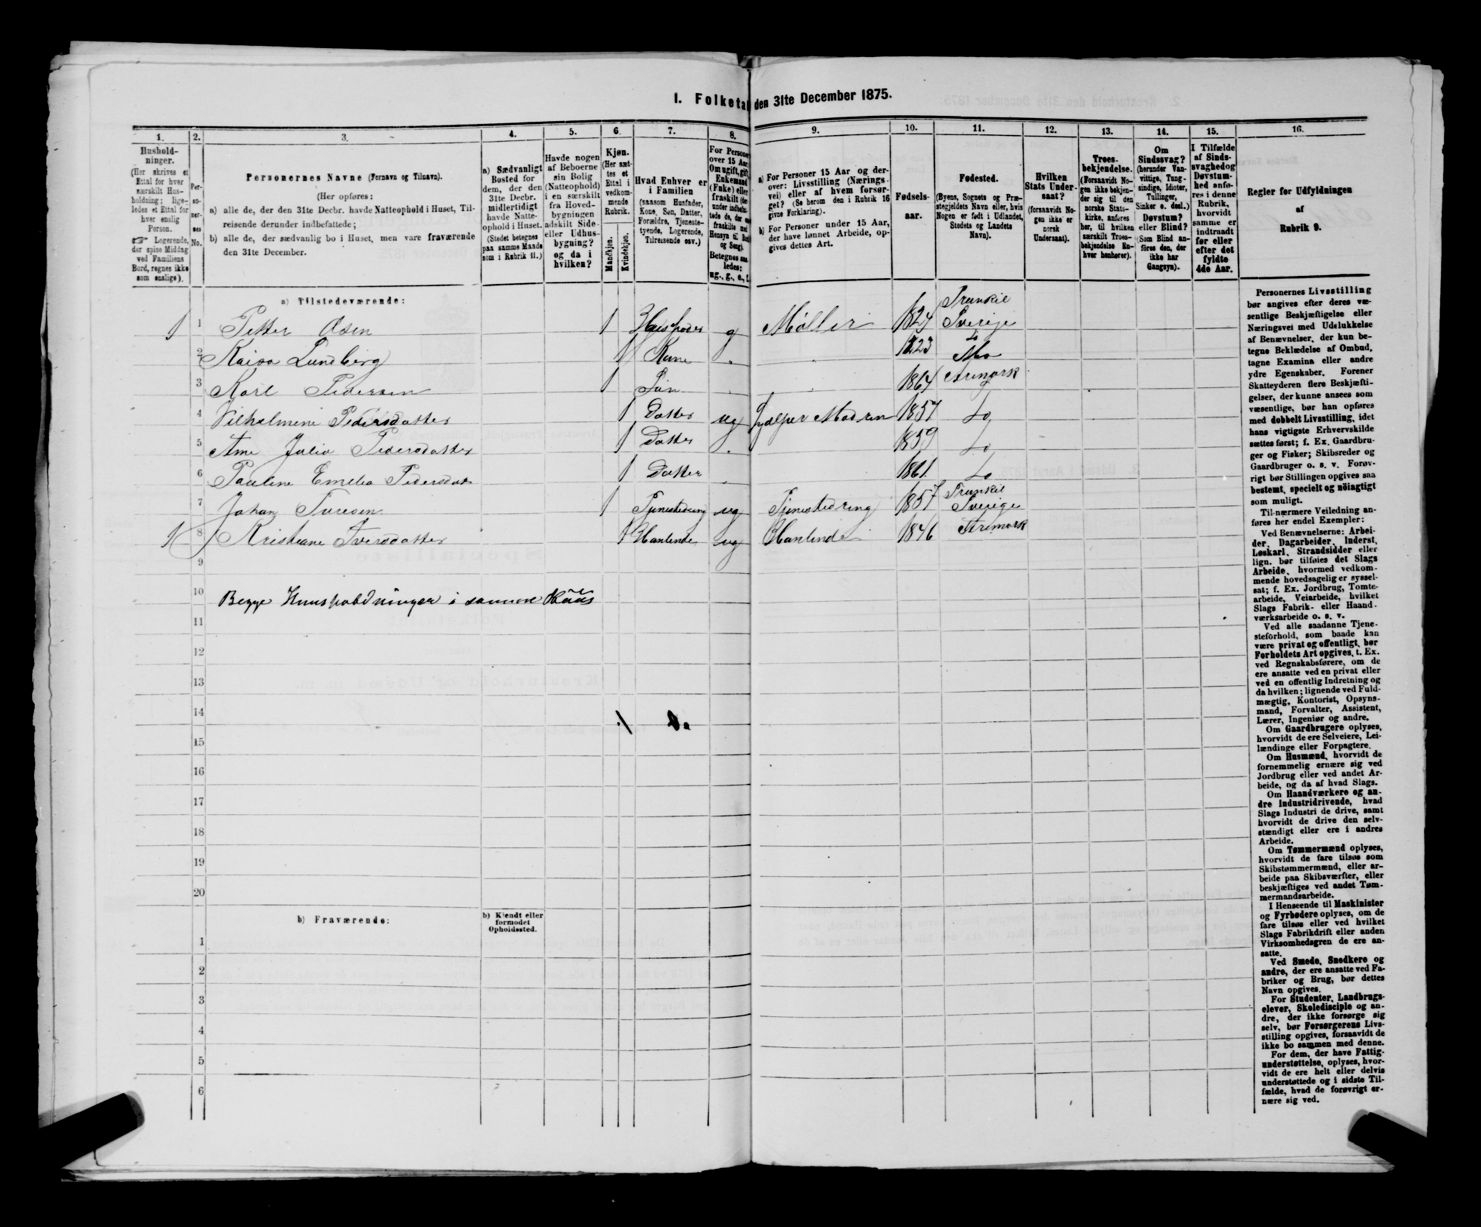 I. Folketal den 31te December 1875.
1.
2.
3.
4.
5.
6.
7.
8.
9.
10.
11.
12.
13.
14.
15.
16.
Hushold-
ninger.
(Her skrives et
Ettal for hver
særskilt Hus-
holdning; lige-
ledes et Ettal for
hver enslig
Person.
☞ Logerende,
der spise Middag
ved Familiens
Bord, regnes ikke
som enslige).
Per-
so-
ner-
nes
No.
Personernes Navne (Fornavn og Tilnavn).
(Her opføres:
a) alle de, der den 31te Decbr. havde Natteophold i Huset, Til-
reisende derunder indbefattede;
b) alle de, der sædvanlig bo i Huset, men vare fraværende
den 31te December.
a) Sædvanligt
Bosted for
dem, der den
31te Decbr.
midlertidigt
havde Natte-
ophold i Huset.
(Stedet betegnes
paa samme Maade
som i Rubrik 11.)
Havde nogen
af Beboerne
sin Bolig
(Natteophold)
i en særskilt
fra Hoved-
bygningen
adskilt Side-
eller Udhus-
bygning?
og da i
hvilken?
Kjøn.
(Her sæt-
tes et
Ettal i
vedkom-
mende
Rubrik.
Mandkjøn.
Kvindekjøn.
Hvad Enhver er
i Familien
(saasom Husfader,
Kone, Søn, Datter,
Forældre, Tjeneste-
tyende, Logerende,
Tilreisende osv.)
For Personer
over 15 Aar:
Om ugift, gift,
Enkemand
(Enke) eller
fraskilt
a) For Personer 15 Aar og der-
over: Livsstilling (Nærings-
vei) eller af hvem forsør-
get? (Se herom den i Rubrik 16
givne Forklaring).
b) For Personer under 15 Aar,
der have lønnet Arbeide, op-
gives dettes Art.
Fødsels-
aar.
Fødested.
(Byens, Sognets og Præ-
stegjeldets Navn eller, hvis
Nogen er født i Udlandet,
Stedets og Landets
Navn).
Hvilken
Stats Under-
saat?
(forsaavidt No-
gen ikke er
norsk
Undersaat).
Troes-
bekjendelse.
(Forsaavidt No-
gen ikke bekjen-
der sig til den
norske Stats-
kirke, anføres
her, til hvilken
særskilt Troes-
bekjendelse En-
hver henhører).
Om
Sindssvag?
(herunder Van-
vittige, Tung-
sindige, Idioter,
Tullinger,
Sinker o. desl.)
Døvstum?
eller Blind?
(Som Blind an-
føres den, der
ikke har
Gangsyn).
I Tilfælde
af Sinds-
svaghed og
Døvstum-
hed anfø-
res i denne
Rubrik,
hvorvidt
samme er
indtraadt
før eller
efter det
fyldte
4de Aar.
Regler for Udfyldningen
af
Rubrik 9.
a) Tilstedeværende:
1 1 Petter Olsen 1 Husfader g Møller 1824 Trankil Sverige
2 Kaisa Lundberg 1 Kone 1823 Do
3 Karl Pedersen 1 Søn 1864 Aremark
4 Vilhelmine Pedersdatter 1 Datter ug Hjelper Modren 1857 Do
5 Ane Julia Pedersdatter 1 Datter 1859 Do
6 Pauline Emelia Pedersdat 1 Datter 1861 Do
7 Johan Turesen 1 Tjenestedreng ug Tjenestedreng 1857 Trankil Sverige
1 8 Kristiane Iversdatter 1 ug 1846 Aremark
9
10 Begge Huusholdninger i samme Huus
11
12
13
14 1 Do
15
16
17
18
19
20
b) Fraværende:
b) Kjendt eller
formodet
Opholdssted.
1
2
3
4
5
6
Personernes Livsstilling
bør angives efter deres væ-
sentlige Beskjæftigelse eller
Næringsvei med Udelukkelse
af Benævnelser, der kun be-
tegne Beklædelse af Ombud,
tagne Examina eller andre
ydre Egenskaber. Forener
Skatteyderen flere Beskjæfti-
gelser, der kunne ansees som
væsentlige, bør han opføres
med dobbelt Livsstilling, idet
hans vigtigste Erhvervskilde
sættes først; f. Ex. Gaardbru-
ger og Fisker; Skibsreder og
Gaardbruger o. s. v. Forøv-
rigt bør Stillingen opgives saa
bestemt, specielt og nøiagtigt
som muligt.
Til nærmere Veiledning an-
føres her endel Exempler:
Ved Benævnelserne: Arbei-
der, Dagarbeider, Inderst,
Løskarl, Strandsidder eller
lign. bør tilføies det Slags
Arbeide, hvormed vedkom-
mende hovedsagelig er syssel-
sat; f. Ex. Jordbrug, Tomte-
arbeide, Veiarbeide, hvilket
Slags Fabrik- eller Haand-
værksarbeide o. s. v.
Ved alle saadanne Tjene-
steforhold, som baade kan
være privat og offentligt, bør
Forholdets Art opgives, t. Ex.
ved Regnskabsførere, om de
ere ansatte ved en privat eller
ved en offentlig Indretning og
da hvilken; lignende ved Fuld-
mægtig, Kontorist, Opsyns-
mand, Forvalter, Assistent,
Lærer, Ingeniør og andre.
Om Gaardbrugere oplyses,
hvorvidt de ere Selveiere, Lei-
lændinge eller Forpagtere.
Om Husmænd, hvorvidt de
fornemmelig ernære sig ved
Jordbrug eller ved andet Ar-
beide, og da af hvad Slags.
Om Haandværkere og an-
dre Industridrivende, hvad
Slags Industri de drive, samt
hvorvidt de drive den selv-
stændigt eller ere i andres
Arbeide.
Om Tømmermænd oplyses,
hvorvidt de fare tilsøs som
Skibstømmermænd, eller ar-
beide paa Skibsværfter, eller
beskjæftiges ved andet Tøm-
mermandsarbeide.
I Henseende til Maskinister
og Fyrbødere oplyses, om de
fare tilsøs eller ved hvilket
Slags Fabrikdrift eller anden
Virksomhedsgren de ere an-
satte.
Ved Smede, Snedkere og
andre, der ere ansatte ved Fa-
briker og Brug, bør dettes
Navn opgives.
For Studenter, Landbrugs-
elever, Skoledisciple og an-
dre, der ikke forsørge sig
selv, bør Forsørgerens Livs-
stilling opgives, forsaavidt de
ikke bo sammen med denne.
For dem, der have Fattig-
understøttelse, oplyses, hvor-
vidt de ere helt eller delvis
understøttede og i sidste Til-
fælde, hvad de forøvrigt er-
nære sig ved.